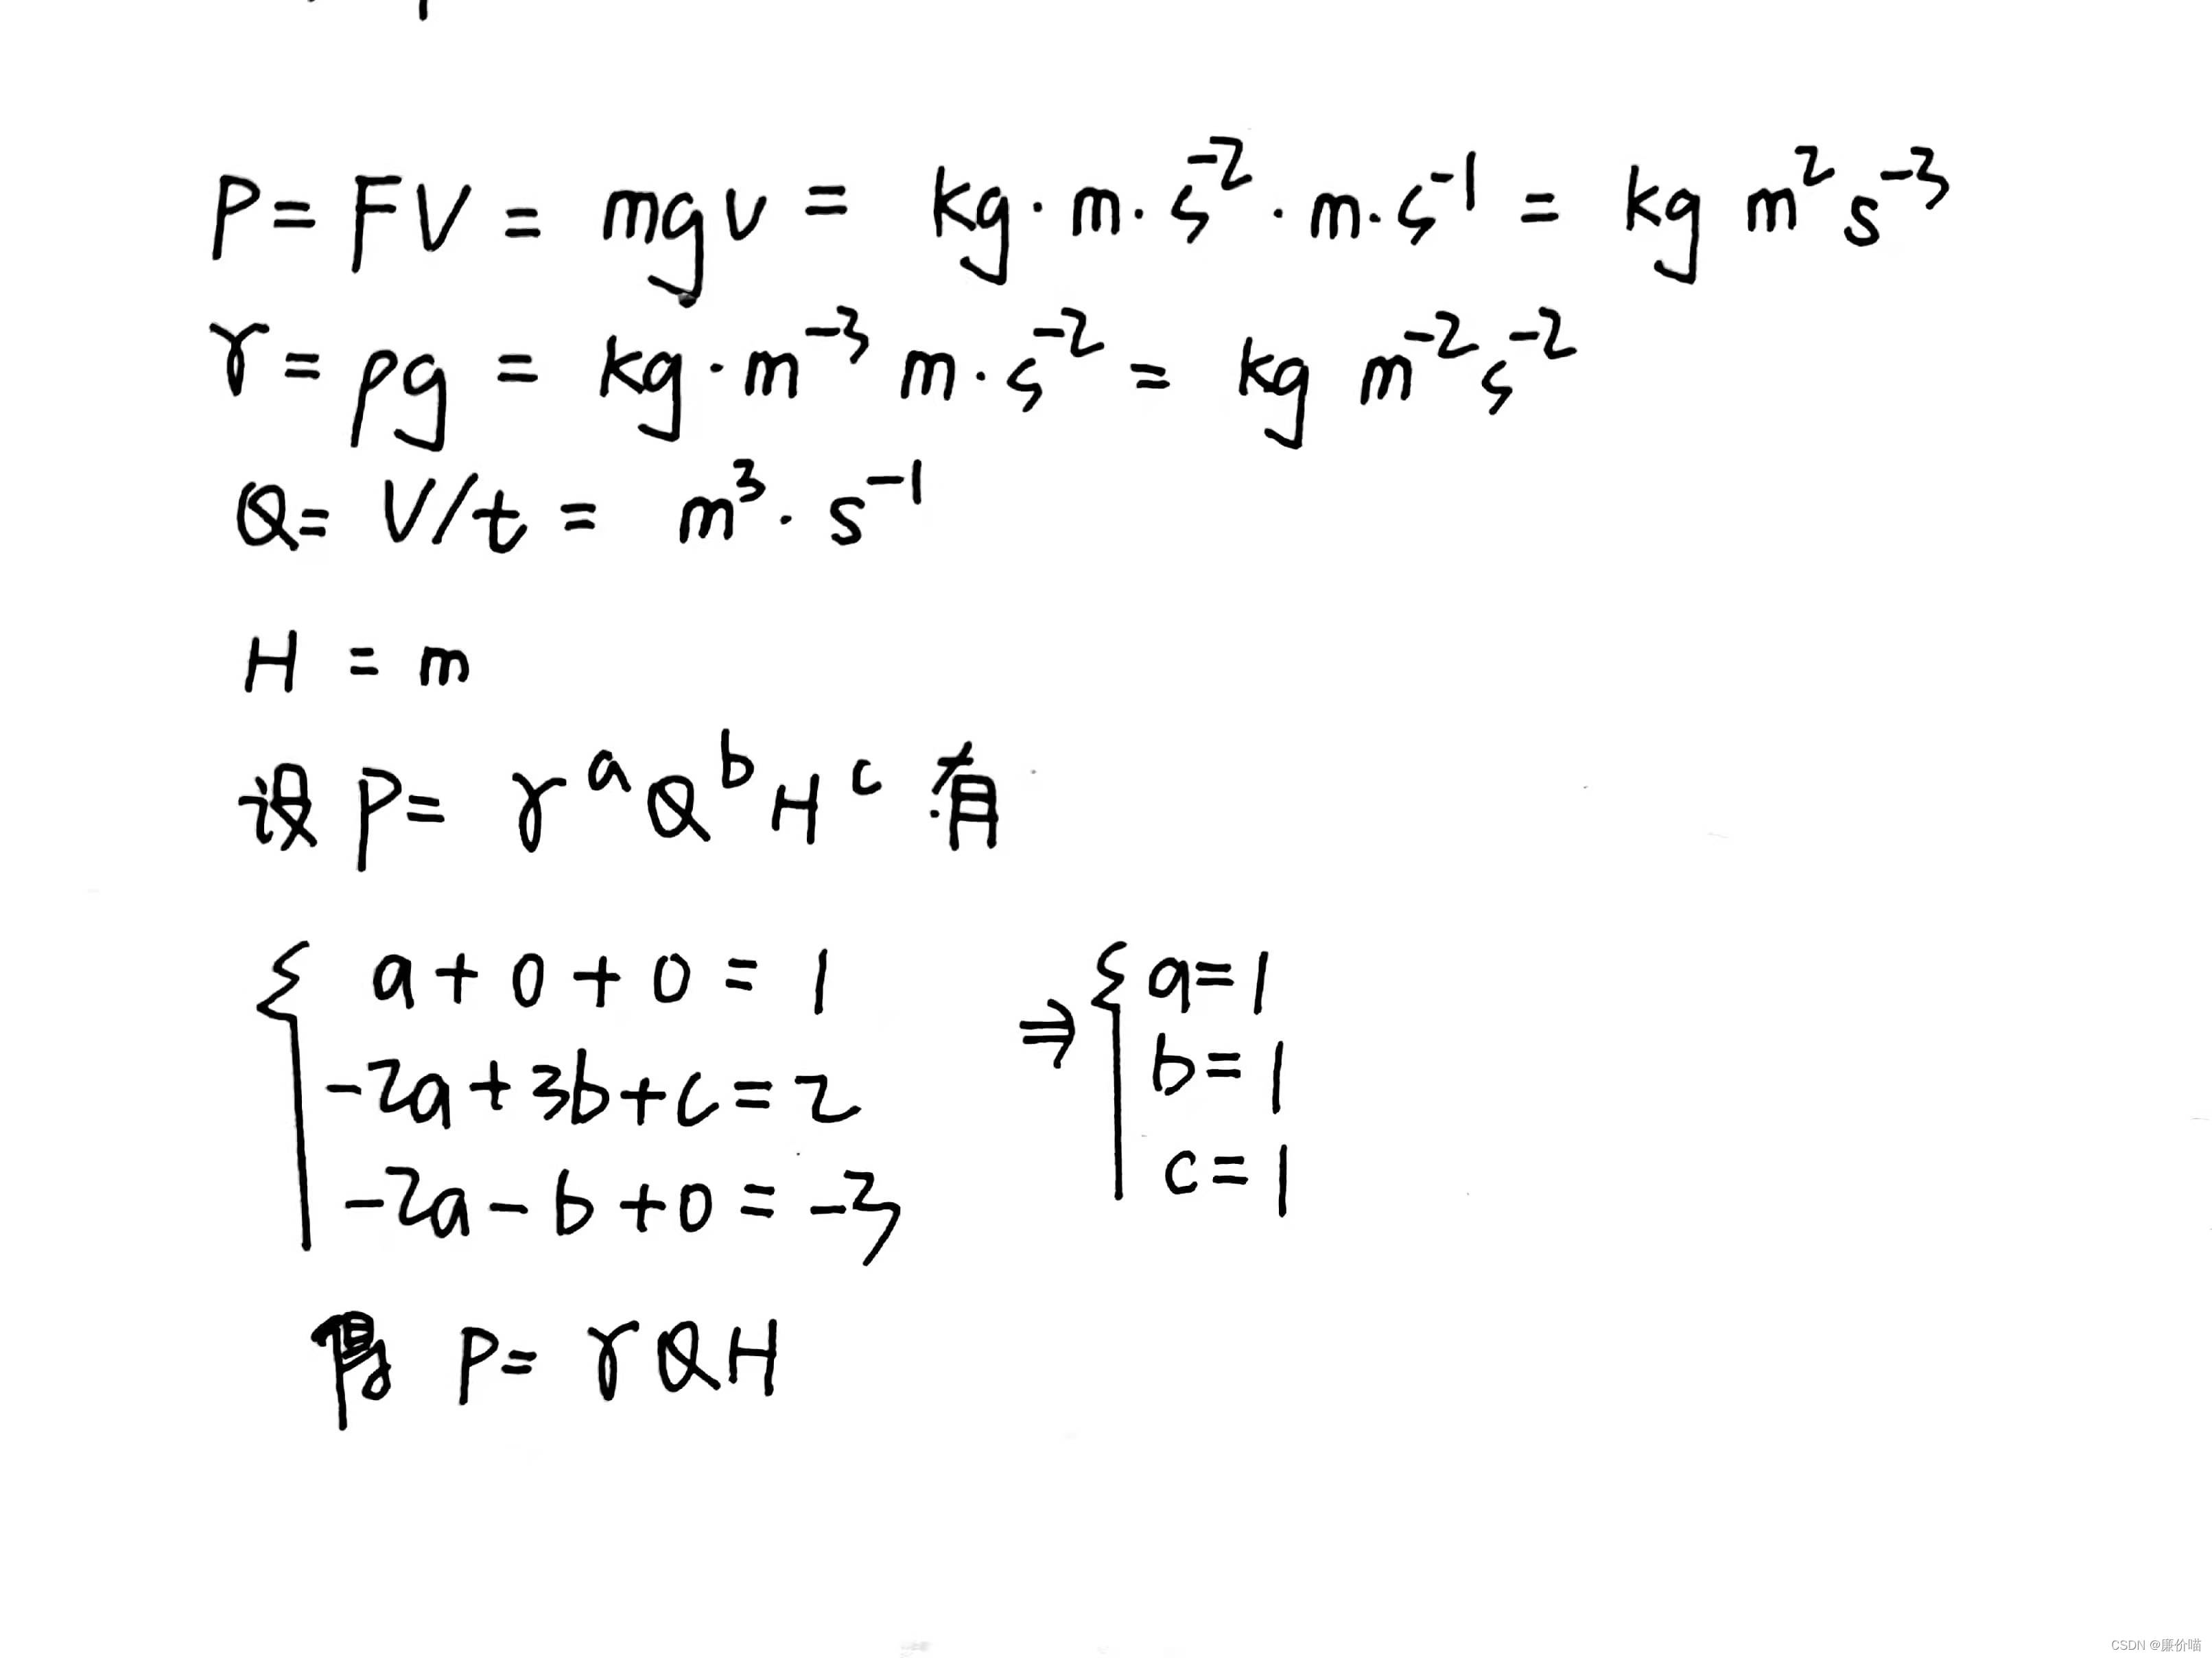 P = FV = mgv = kg·m·s⁻²·m·s⁻¹ = kg m² s⁻³
γ = ρg = kg·m⁻³ m·s⁻² = kg m⁻² s⁻²
Q = V/t = m³·s⁻¹
H = m
设 P = γᵃ Qᵇ Hᶜ 有
{ a + 0 + 0 = 1 ⇒ { a = 1
-2a + 3b + c = 2 b = 1
-2a - b + 0 = -3 c = 1
得 P = γQH
CSDN @廉价喵